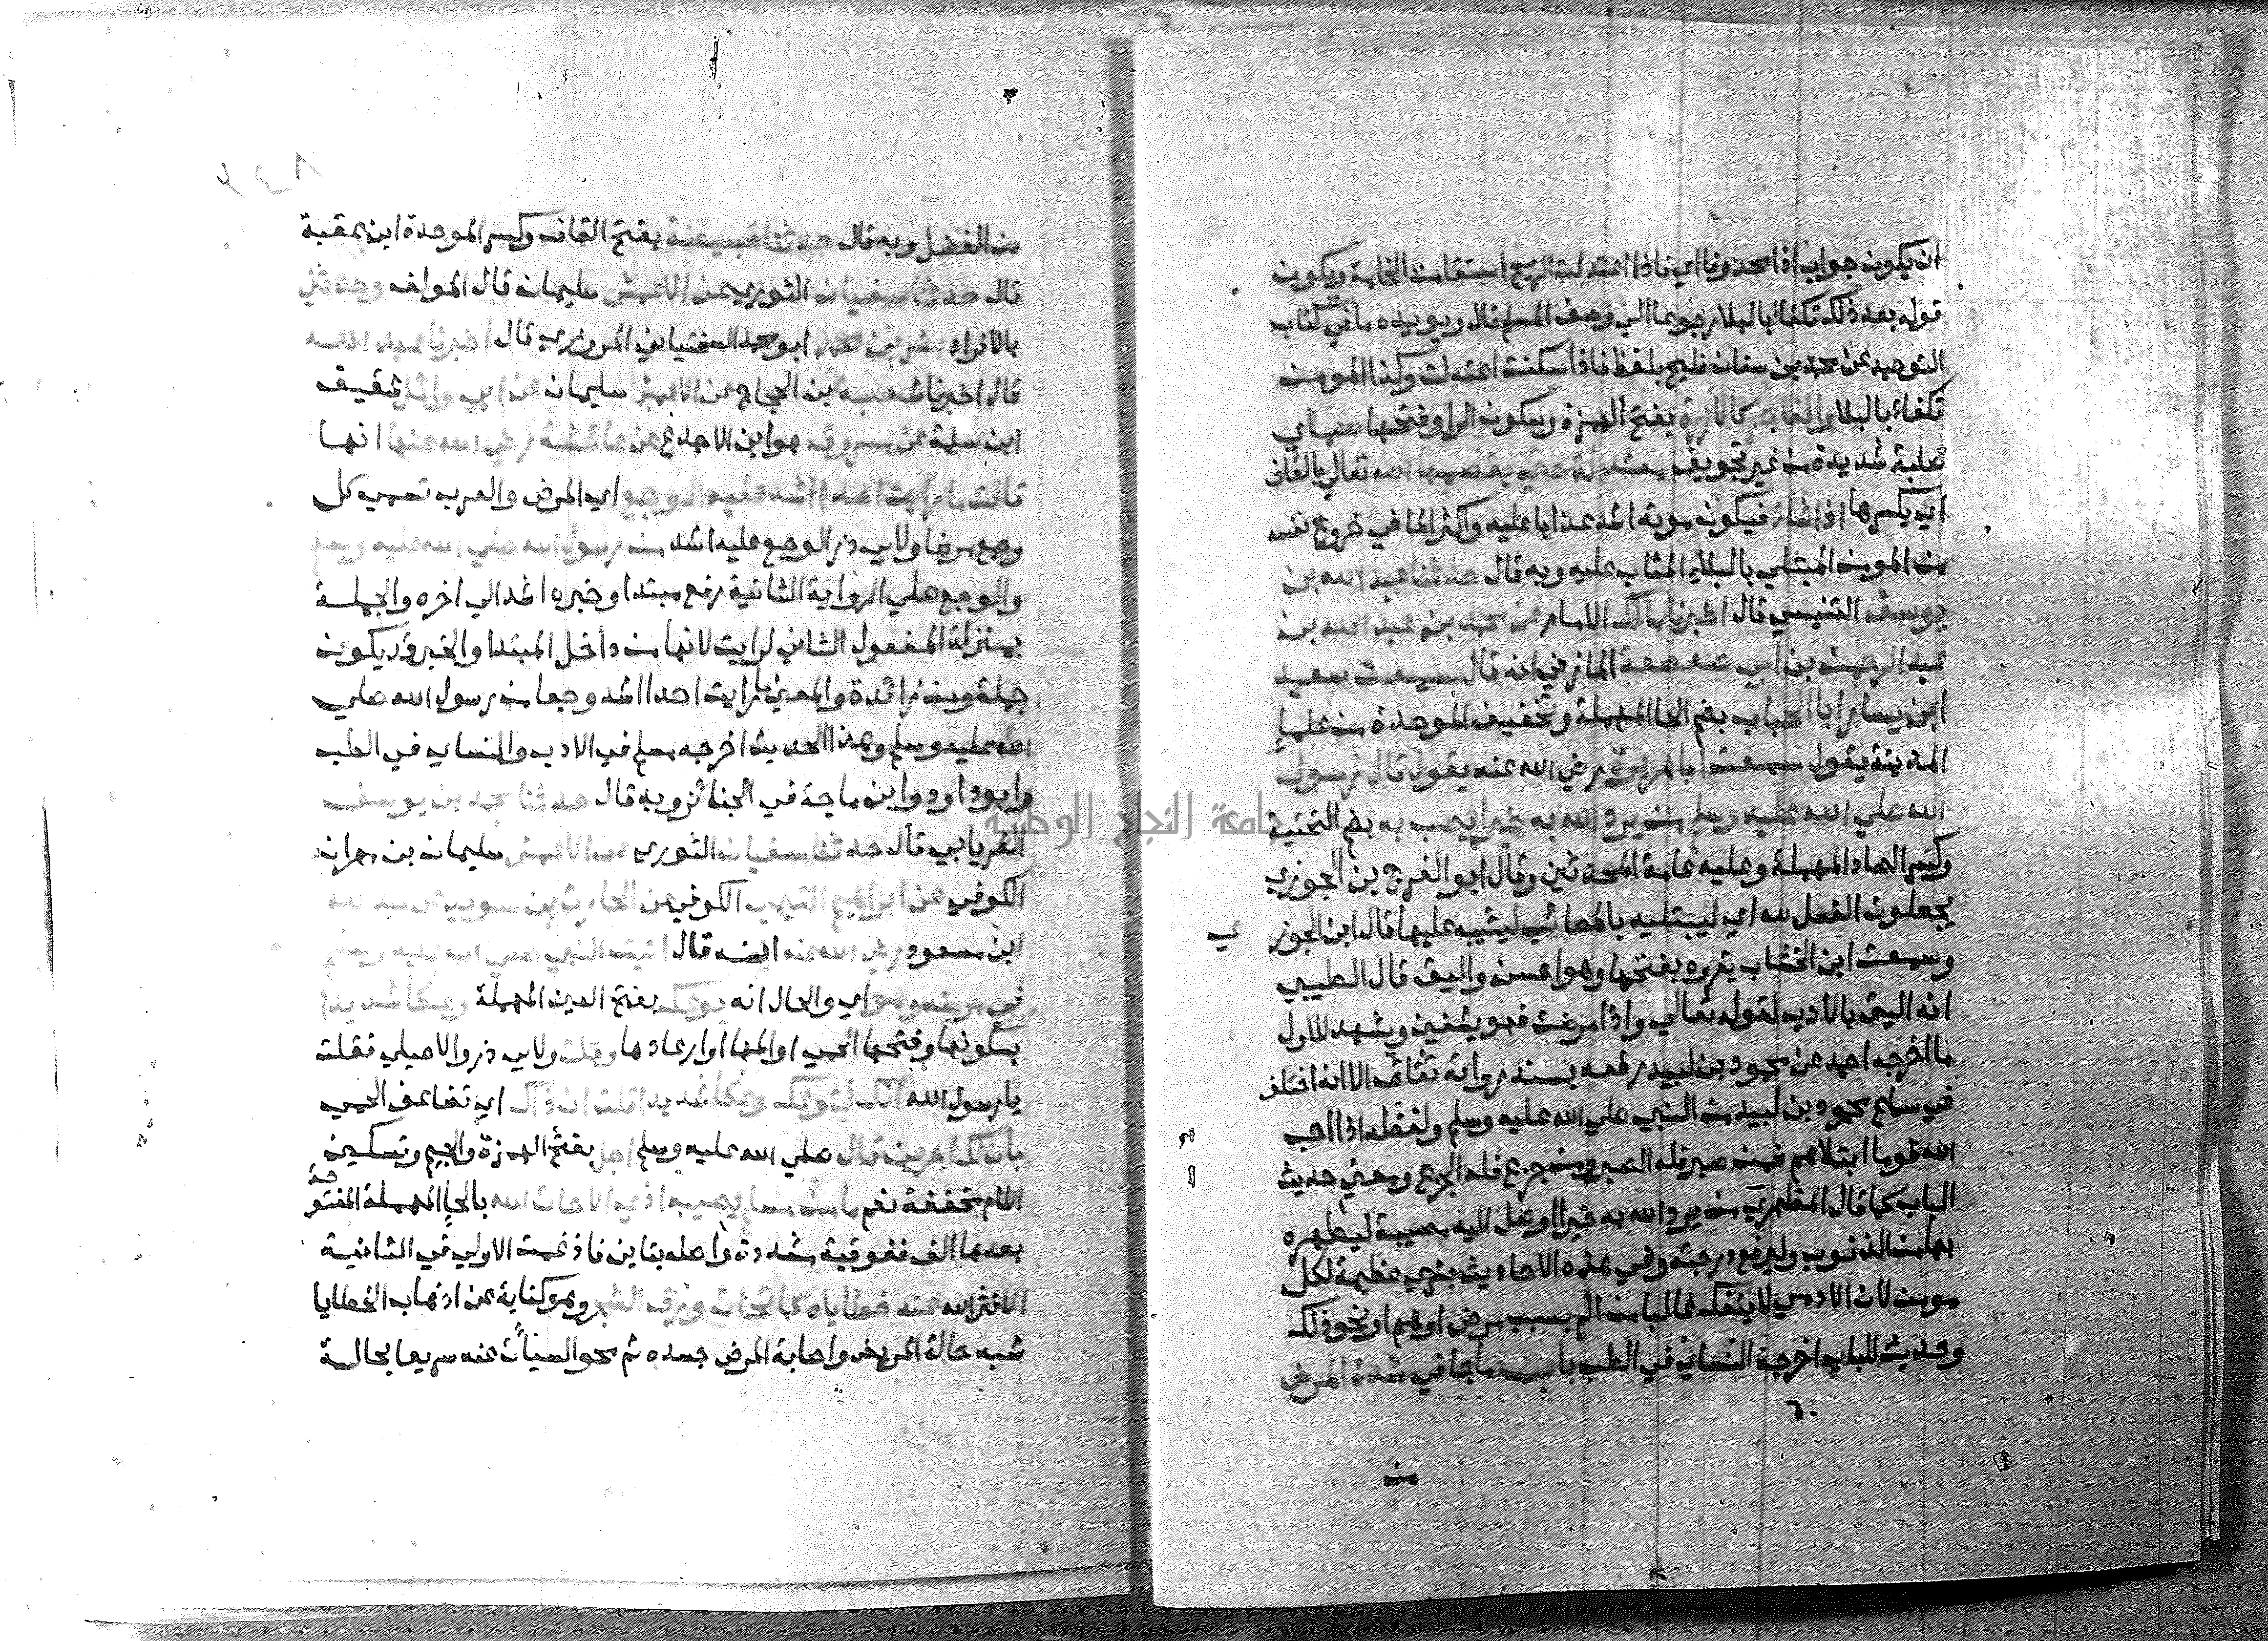 ان يكون جواب اذا محذوفا اي فاذا اعتدلت الريح استقامت الخامة ويكون
قوله بعد ذلك تكفأ بالبلا رجوعا الي وصف المسلم قال ويويده ما في كتاب
التوحيد عن محمد بن سنان فليح بلفظ فاذا سكنت اعتدلت وكذا المومن
تكفأ بالبلا والفاجر كالارزة بفتح الهمزة وسكون الرا وفتحها
صلبة شديدة من غير تجويف معتدلة حتي يقصمها الله تعالي بالقاف
اي يكسرها اذا شاء فيكون موته اشد عذابا عليه واكثر الما في خروج نفسه
من المومن المبتلي بالبلاء المثاب عليه وبه قال حدثنا عبد الله بن
يوسف التنيسي قال اخبرنا مالك الامام عن محمد بن عبد الله بن
عبد الرحمن بن ابي صعصعة المازني انه قال سمعت سعيد
ابن يسار ابا الحباب بضم الحا المهملة وتخفيف الموحدة من علماء
المدينة يقول سمعت ابا هريرة رضي الله عنه يقول قال رسول
الله صلي الله عليه وسلم من يرد الله به خيرا يصب به بضم التحتية
جامعة النجاح الوطنية
وكسر الصاد المهملة وعليه عامة المحدثين وقال ابو الفرج بن الجوزي
يجعلون الفعل لله اي ليبتليه بالمصائب ليثيبه عليها قال ابن الجوز ي
وسمعت ابن الخشاب يقروه بفتحها وهو احسن واليق قال الطيبي
انه اليق بالادب لقوله تعالي واذا مرضت فهو يشفين ويشهد للاول
ما اخرجه احمد عن محمود بن لبيد رفعه بسند رواته ثقات الا انه اختلف
في سماع محمود بن لبيد من النبي صلي الله عليه وسلم ولفظه اذا احب
الله قوما ابتلاهم فمن صبر فله الصبر ومن جزع فله الجزع ومعني حديث
الباب كما قال المظهري من يرد الله به خيرا اوصل اليه مصيبة ليطهره
بها من الذنوب وليرفع درجته وفي هذه الاحاديث بشري عظيمة لكل
مومن لان الادمي لا ينفك غالبا من الم بسبب مرض او هم او نحو ذلك
وحديث الباب اخرجه النسائي في الطب باب ما جا في شدة المرض
٦٠
من
من الفضل وبه قال حدثنا قبيصة بفتح القاف وكسر الموحدة ابن عقبة
قال حدثنا سفيان الثوري عن الاعمش سليمان قال المولف وحدثني
بالافراد بشر بن محمد ابو محمد السختياني المروزي قال اخبرنا عبد الله
قال اخبرنا شعبة بن الحجاج عن الاعمش سليمان عن ابي وائل شقيق
ابن سلمة عن مسروق هو ابن الاجدع عن عائشة رضي الله عنها انها
قالت ما رايت احدا اشد عليه الوجع اي المرض والعرب تسمي كل
وجع مرضا ولابي ذر الوجع عليه اشد من رسول الله صلي الله عليه وسلم
والوجع علي الرواية الثانية رفع مبتدا وخبره اشد الي اخره والجملة
بمنزلة المفعول الثاني لرايت لانها من داخل المبتدا والخبر وقد يكون
جملة ومن زائدة والمعني ما رايت احدا اشد وجعا من رسول الله صلي
الله عليه وسلم وهذا الحديث اخرجه مسلم في الادب والنساي في الطب
وابو داود وابن ماجة في الجنائز وبه قال حدثنا محمد بن يوسف
الفريابي قال حدثنا سفيان الثوري عن الاعمش سليمان بن مهران
الكوفي عن ابراهيم التيمي الكوفي عن الحارث بن سويد عن عبد الله
ابن مسعود رضي الله عنه انه قال اتيت النبي صلي الله عليه وسلم
في مرضه وهو اي والحال انه يوعك بفتح العين المهملة وعكا شديدا
بسكونها وفتحها الحمي او المها او ارعادها وقلت ولابي ذر والاصيلي فقلت
يا رسول الله انك لتوعك وعكا شديدا قلت ان ذاك اي تضاعف الحمي
بان لك اجرين قال صلي الله عليه وسلم اجل بفتح الهمزة والجيم وتسكين
اللام مخففة نعم ما من مسلم يصيبه اذي الا حات الله بالحا المهملة المفتوحة
بعدها الف ففوقية مشددة واصله بتاين فادغمت الاولي في الثانية
الا نثر الله عنه خطاياه كما تحات ورق الشجر وهو كناية عن اذهاب الخطايا
شبه حالة المريض واصابة المرض جسده ثم محو السيئات عنه سريعا بحالة